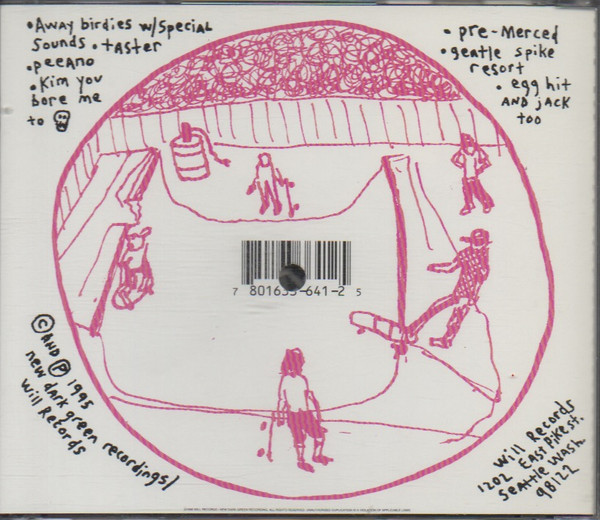 • Away birdies w/special
sounds • taster
• peeano
• Kim you
bore me
to
• pre-Merced
• geatle spike
resort
• egg hit
AND jack
too
7 801635-641-2 5
© AND ℗ 1995
new dark green recordings/
Will Records
Will Records
1202 East Pike st.
Seattle Wash.
98122